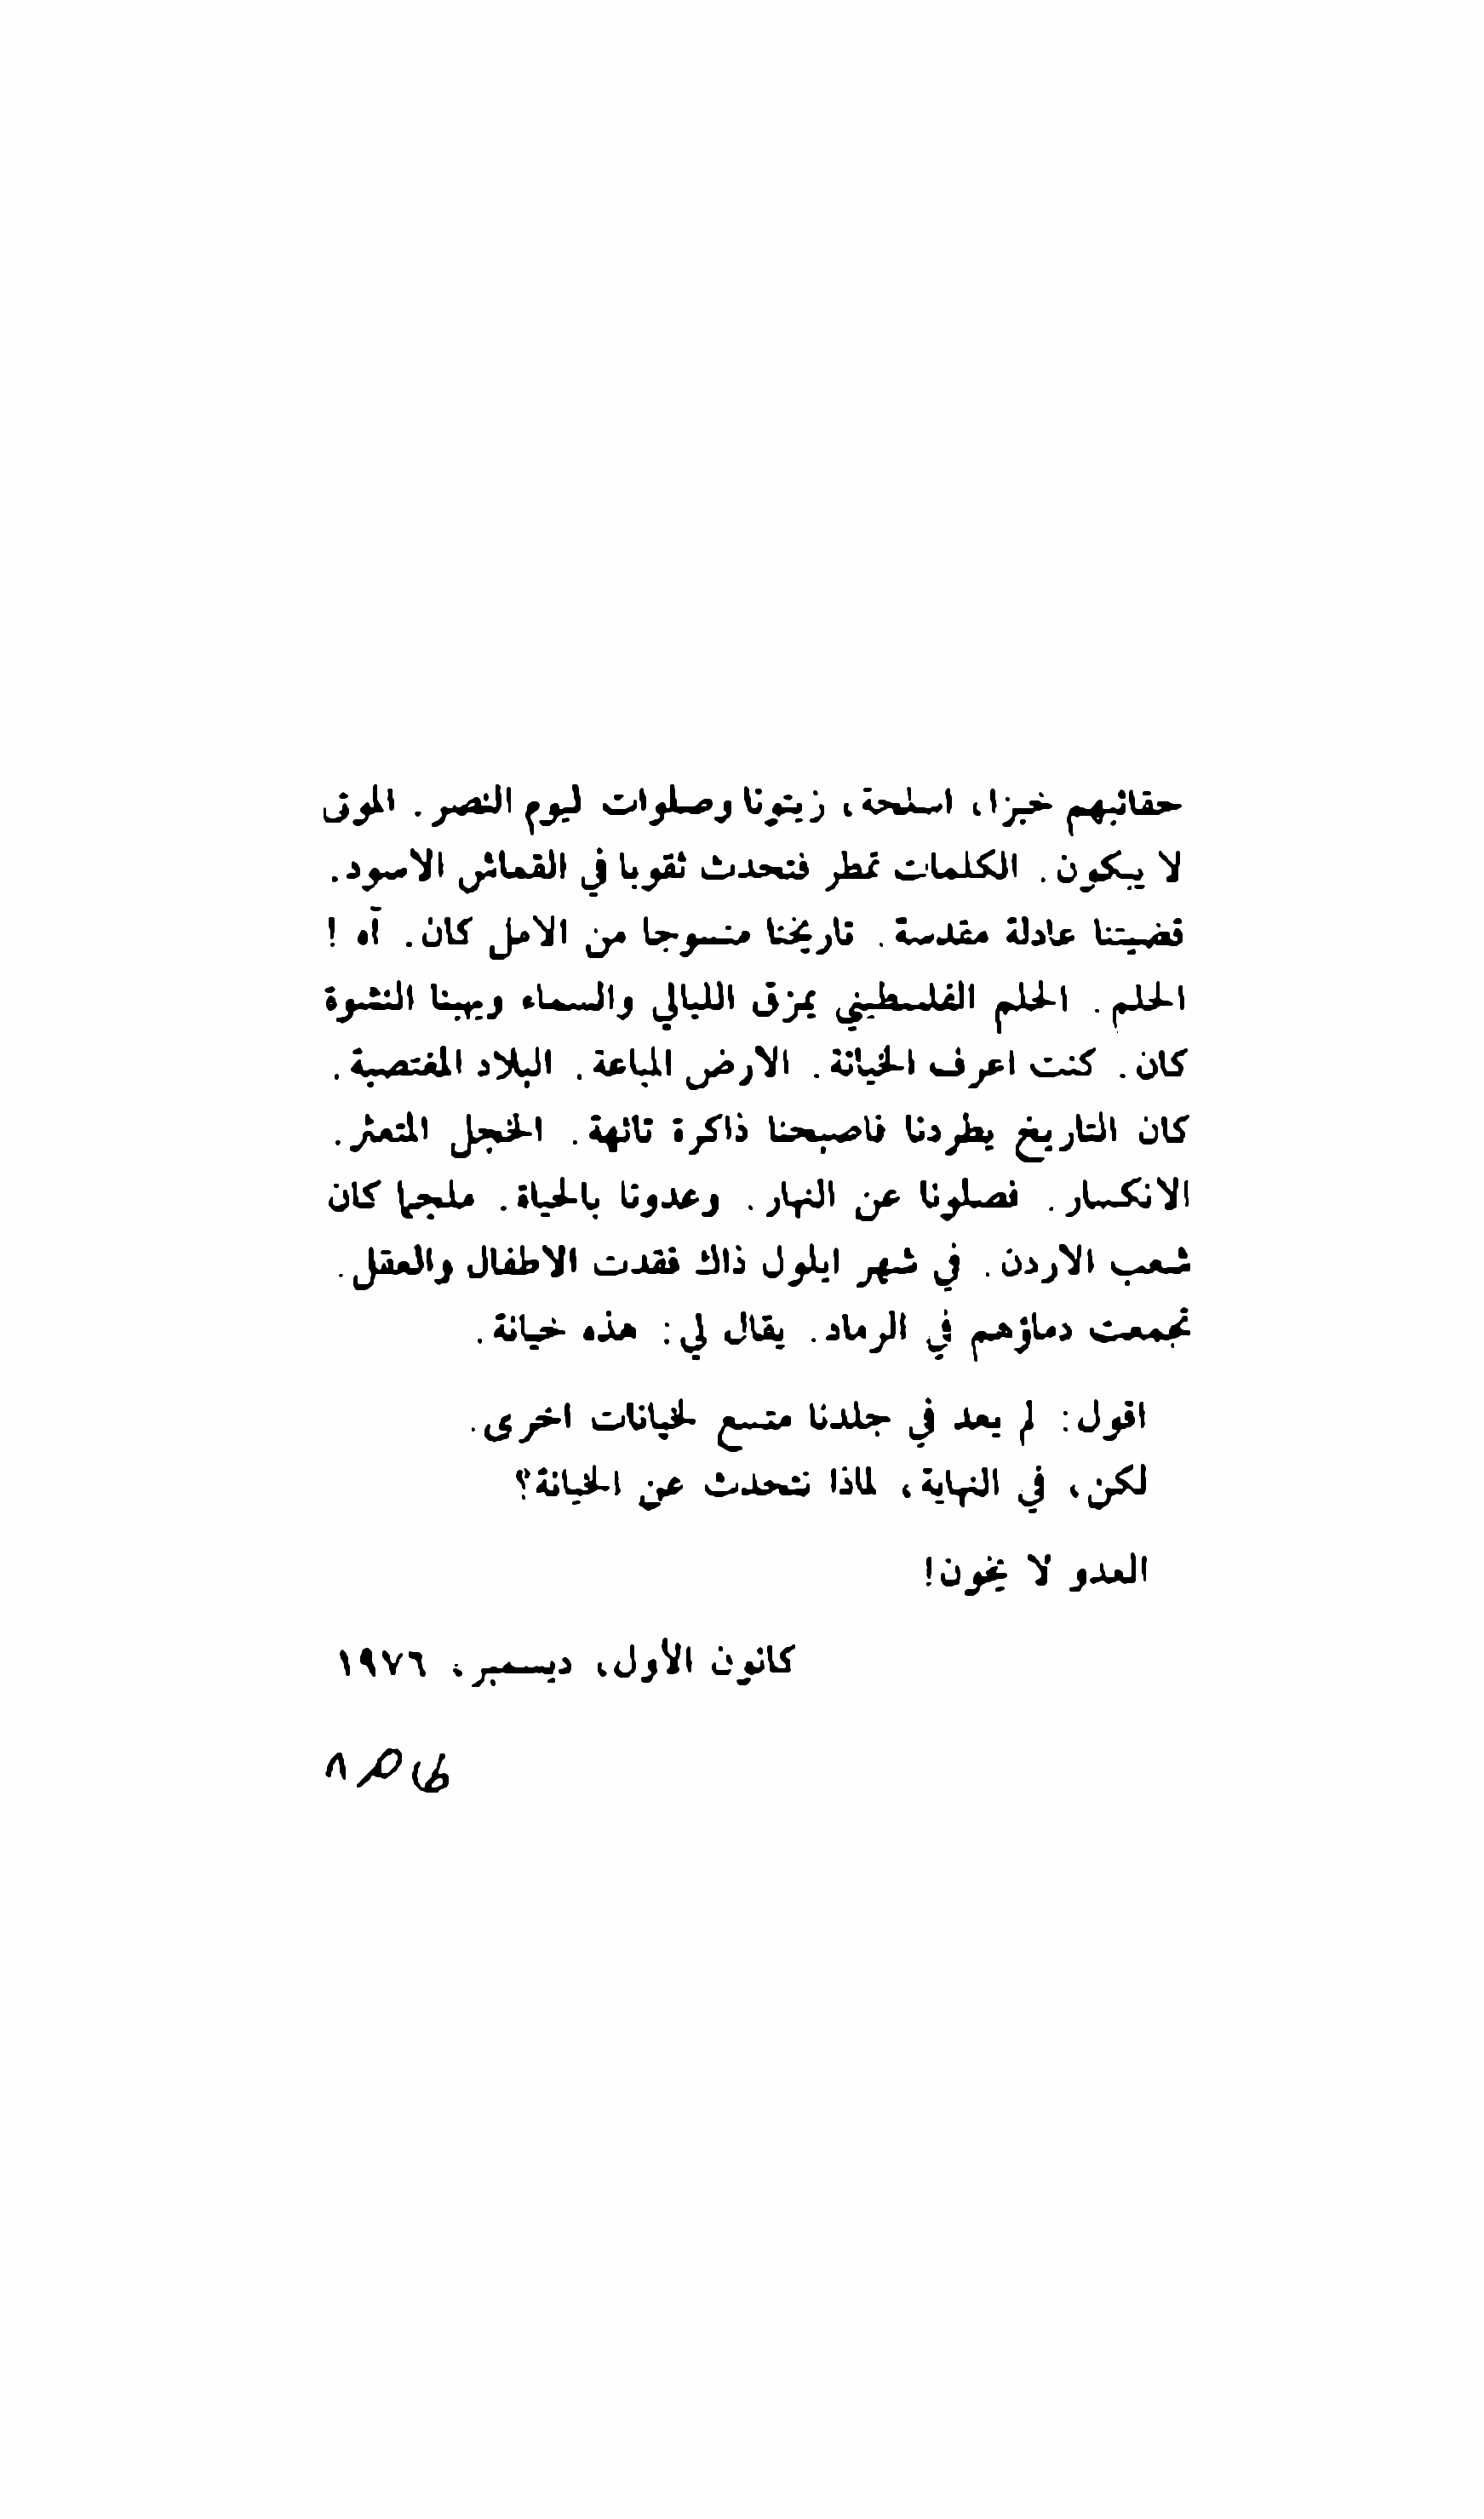 حقائبهم خبزا، اسلحة، زيتونا وصلوات ليوم النصر. الذين
لا يبكون. الكلمات تمطر فتحدث ثقوبا في القماش الأسود.
قضيتنا عادلة مقدسة. تاريخنا منسوجا من الامل كان. آه !
الحلم. الحلم الفلسطيني يمزق الليالي والسماء وميضا النشوة
كان. كنت اعرف الخيانة. الارض المباعة. البلاد المغتصبة.
كان التاريخ يطردنا فاصبحنا ذاكرة تائهة. الخجل التعثر.
الانكسار. فصلونا عن النهار. وعدونا بالحياة. ملجعا كان
شعب الاردن. في شهر ايلول ذاك فقدت الاطفال والعقل.
تجمعت دماؤهم في الرماد. يقال لي: هذه خيانة.
اقول: لم يعد في جلدنا متسع لخيانات اخرى.
لكن، في النهاية، لماذا نتحدث عن الخيانة؟
العدو لا يخون!
كانون الأول، ديسمبر. ١٩٧٦